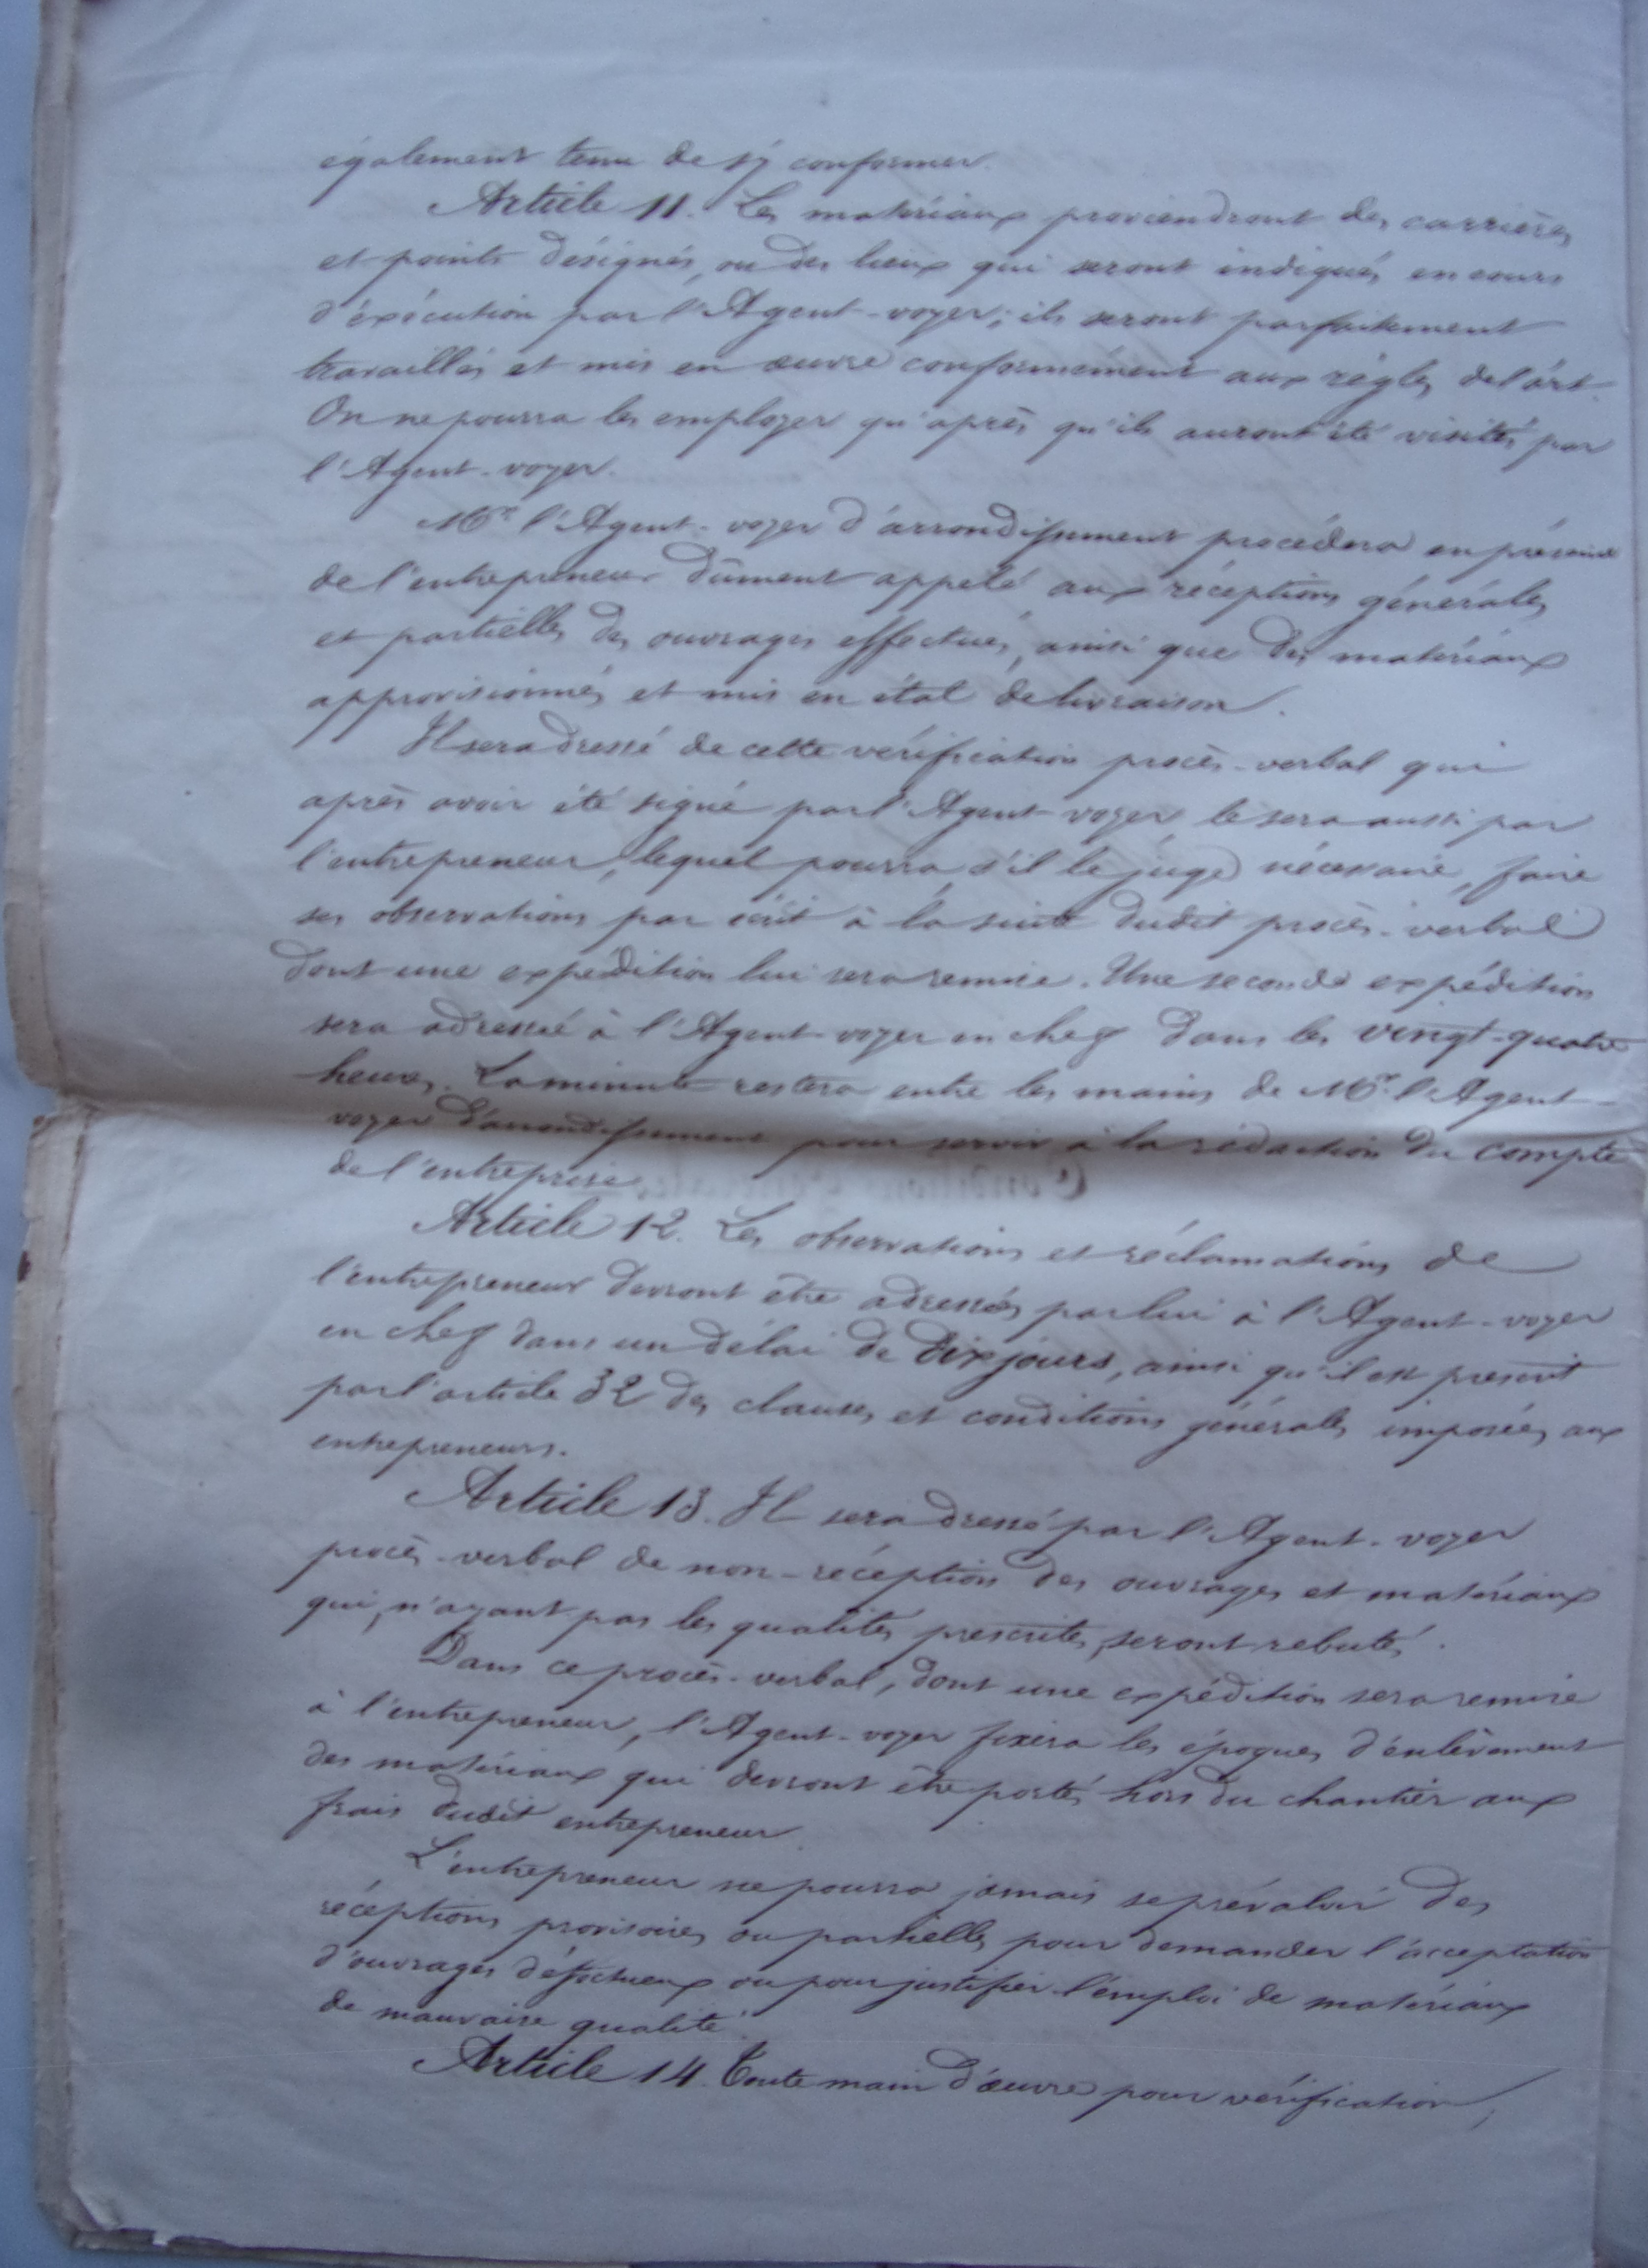 également tenu de s'y conformer.
Article 11. Les matériaux proviendront des carrières
et points désignés, ou des lieux qui seront indiqués en cours
d'éxécution par l'Agent-voyer; ils seront parfaitement
travaillés et mis en œuvre conformément aux règles de l'art.
On ne pourra les employer qu'après qu'ils auront été visités par
l'Agent-voyer.
Mr. l'Agent-voyer d'arrondissement procédera en présence
de l'entrepreneur dûment appelé aux réceptions générales
et partielles des ouvrages effectués, ainsi que des matériaux
approvisionnés et mis en état de livraison.
Il sera dressé de cette vérification procès-verbal qui
après avoir été signé par l'Agent-voyer, le sera aussi par
l'entrepreneur, lequel pourra s'il le juge nécessaire, faire
ses observations par écrit à la suite dudit procès-verbal
dont une expédition lui sera remise. Une seconde expédition
sera adressée à l'Agent-voyer en chef dans les vingt-quatre
heures. La minute restera entre les mains de Mr. l'Agent-
voyer d'arrondissement pour servir à la rédaction du compte
de l'entreprise.
Article 12. Les observations et réclamations de
l'entrepreneur devront être adressées par lui à l'Agent-voyer
en chef dans un délai de dix jours, ainsi qu'il est prescrit
par l'article 32 des clauses et conditions générales imposées aux
entrepreneurs.
Article 13. Il sera dressé par l'Agent-voyer
procès-verbal de non-réception des ouvrages et matériaux
qui, n'ayant pas les qualités prescrites, seront rebutés.
Dans ce procès-verbal, dont une expédition sera remise
à l'entrepreneur, l'Agent-voyer fixera les époques d'enlèvement
des matériaux qui devront être portés hors du chantier aux
frais dudit entrepreneur.
L'entrepreneur ne pourra jamais se prévaloir des
réceptions provisoires ou partielles pour demander l'acceptation
d'ouvrages défectueux ou pour justifier l'emploi de matériaux
de mauvaise qualité.
Article 14. Toute main d'œuvre pour vérification,